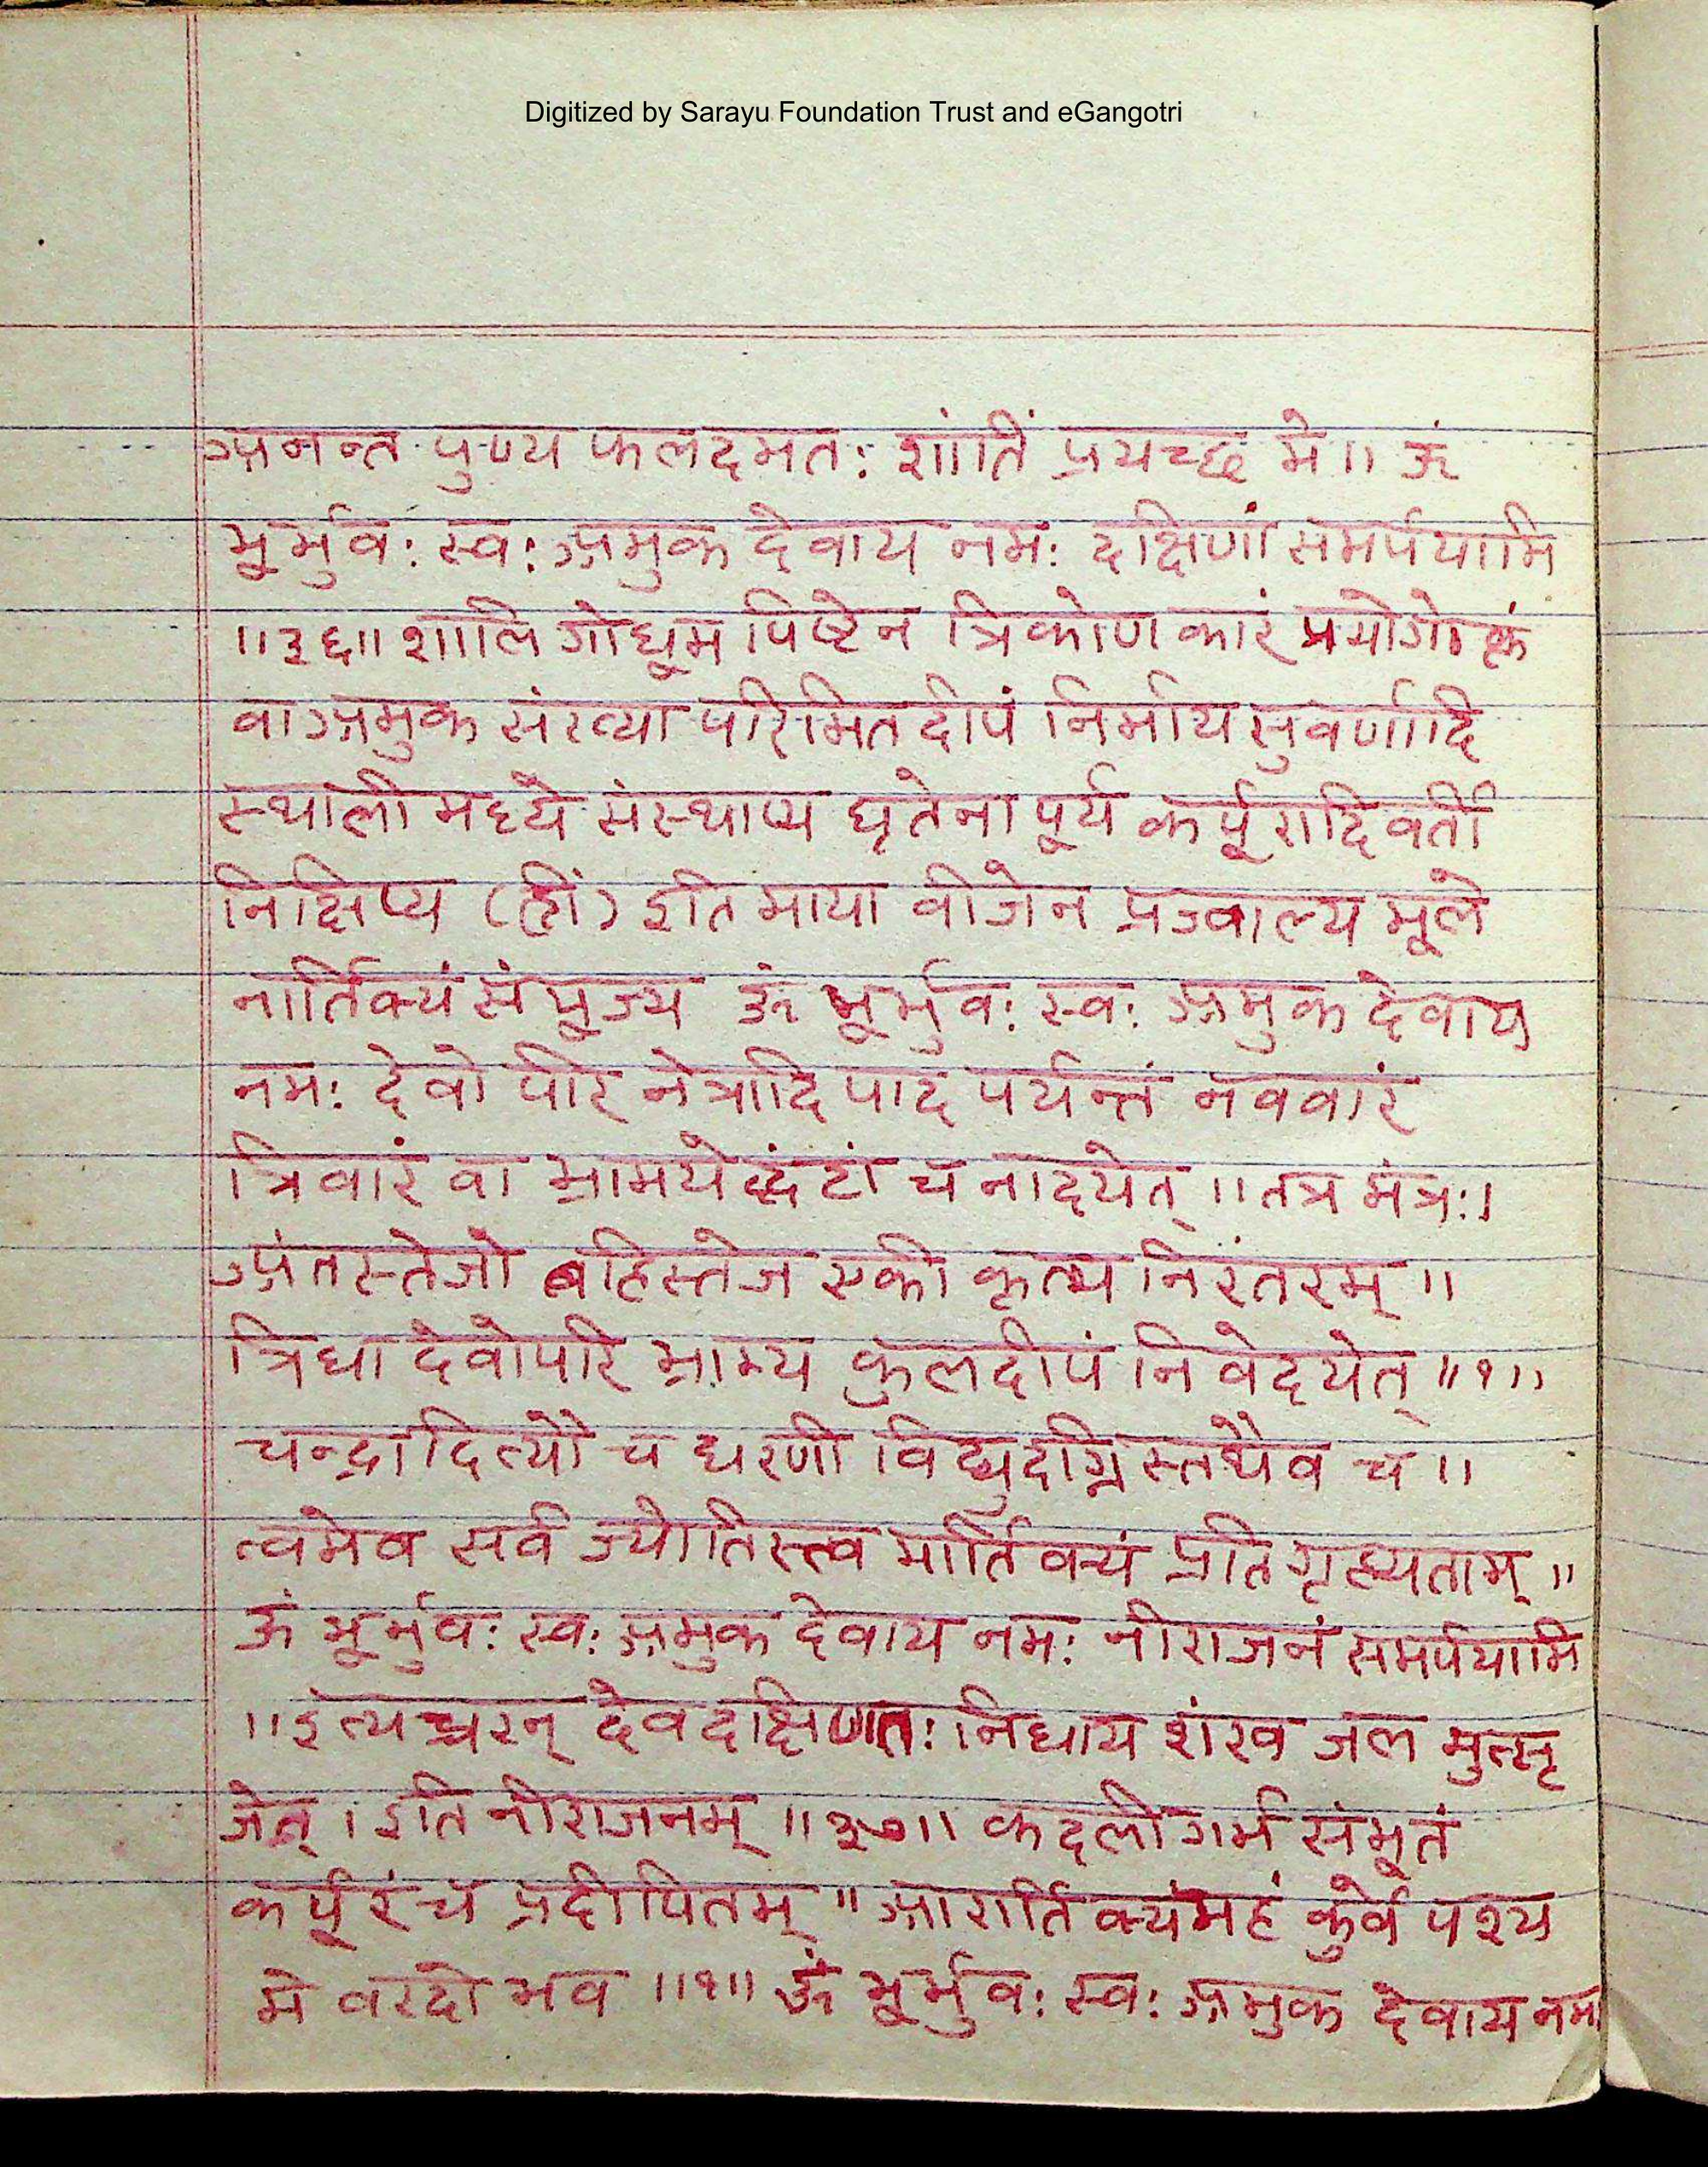 Digitized by Sarayu Foundation Trust and eGangotri
अनन्त पुण्य फलदमतः शांतिं प्रयच्छ मे॥ ॐ
भूर्भुवः स्वः अमुक देवाय नमः दक्षिणां समर्पयामि
॥३६॥ शालि गोधूम पिष्टेन त्रिकोण कारं प्रयोगोक्तं
वा अमुक संख्या परिमित दीपं निर्माय सुवर्णादि
स्थाली मध्ये संस्थाप्य घृतेना पूर्य कर्पूरादि वर्ती
निक्षिप्य (ह्रीं) इति माया वीजेन प्रज्वाल्य मूले
नार्तिक्यं संपूज्य ॐ भूर्भुवः स्वः अमुक देवाय
नमः देवो परि नेत्रादि पाद पर्यन्तं नववारं
त्रिवारं वा भ्रामयेद्घंटां च नादयेत् ॥ तत्र मंत्रः।
अंतस्तेजो बहिस्तेज एकी कृत्य निरंतरम् ॥
त्रिधा देवोपरि भ्राम्य कुलदीपं नि वेदयेत् ॥१॥
चन्द्रादित्यौ च धरणी विद्युदग्निस्तथैव च ॥
त्वमेव सर्व ज्योतिस्त्व मार्तिक्यं प्रति गृह्यताम् ॥
ॐ भूर्भुवः स्वः अमुक देवाय नमः नीराजनं समर्पयामि
॥इत्यच्चरन् देवदक्षिणतः निधाय शंख जल मुत्सृ
जेत् । इति नीराजनम् ॥३७॥ कदली गर्भ संभूतं
कर्पूरं च प्रदीपितम् ॥ आरार्तिक्यंमहं कुर्वे पश्य
मे वरदो भव ॥१॥ ॐ भूर्भुवः स्वः अमुक देवाय नमः